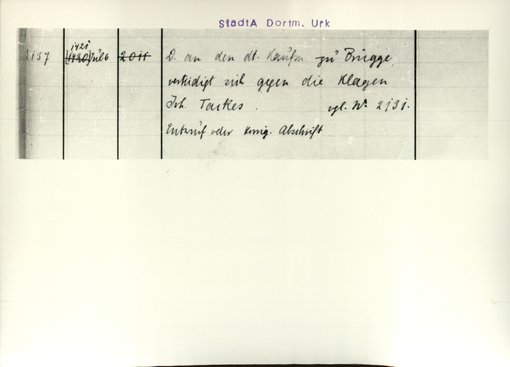 StadtA Dortm. Urk
1157
1421
(1420) Juli 6
2011
D. an den dt. Kaufm. zu Brügge,
verteidigt sich gegen die Klagen
Joh. Tarkes. vgl. No 2131.
Entwurf oder korrig. Abschrift